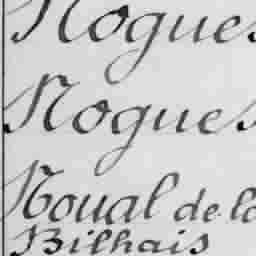 Nogues
Nogues
Noual de la
Bilhais